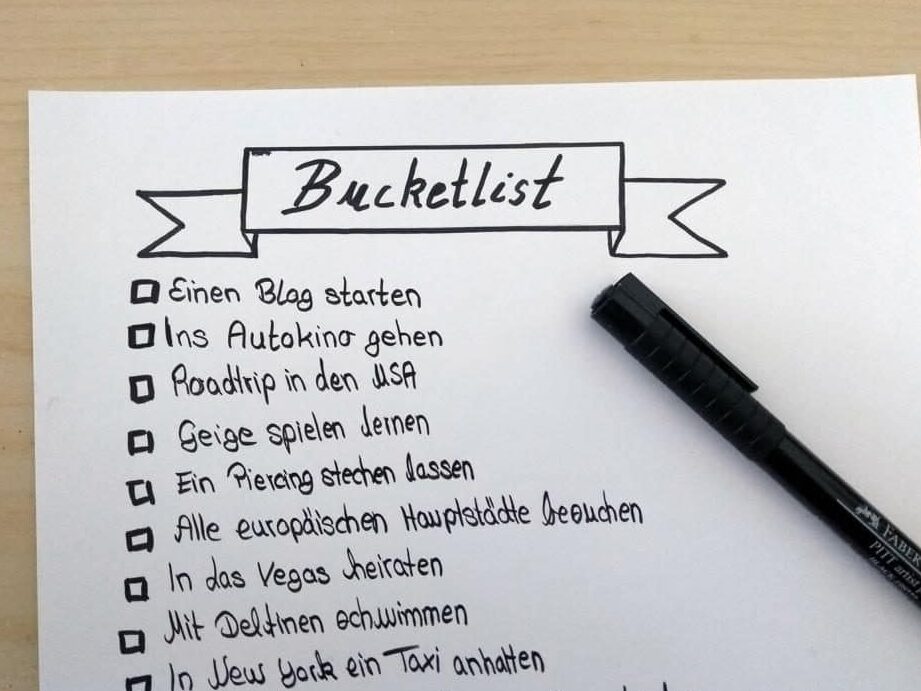 Bucketlist
Einen Blog starten
Ins Autokino gehen
Roadtrip in den USA
Geige spielen lernen
Ein Piercing stechen lassen
Alle europäischen Hauptstädte besuchen
In das Vegas heiraten
Mit Delfinen schwimmen
In New York ein Taxi anhalten
FABER
PITT artist